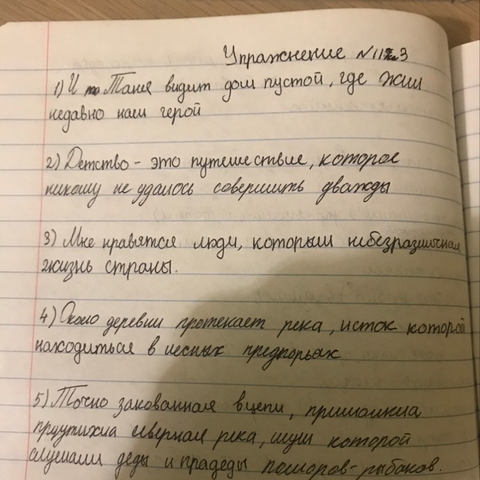 Упражнение №113
1) И Таня видит дом пустой, где жил
недавно наш герой
2) Детство - это путешествие, которое
никому не удалось совершить дважды
3) Мне нравятся люди, которым небезразлична
жизнь страны.
4) Около деревни протекает река, исток которой
находиться в лесных предгорьях
5) Точно закованная в цепи,
северная река, шум которой
слушали деды и прадеды поморов-рыбаков.